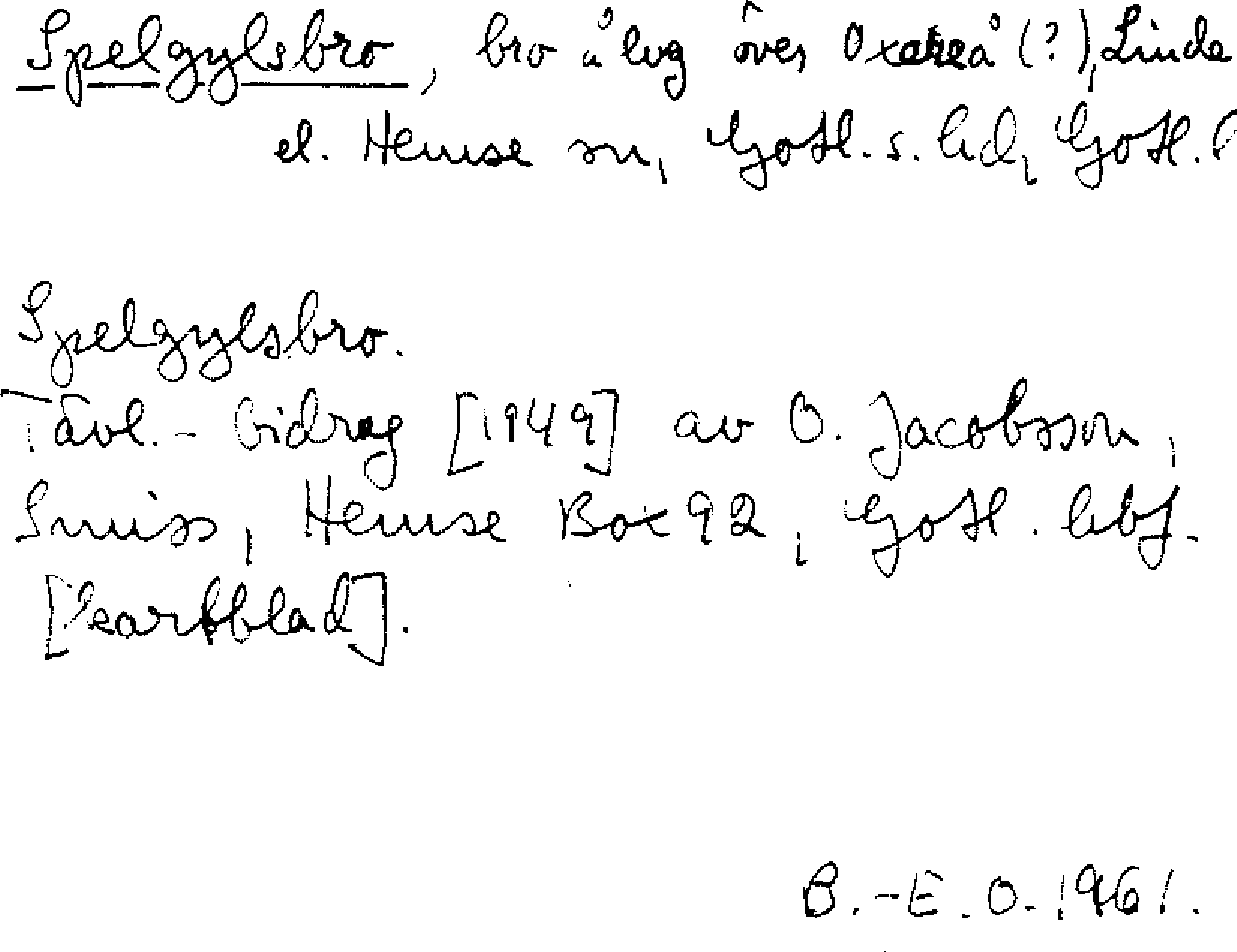 Spelgylsbro, bro å lvg över Oxareå (?), Linde
el. Hemse sn, Gotl. s. hd, Gotl. l
Spelgylsbro.
Tävl.-bidrag [1949] av O. Jacobsson,
Smiss, Hemse Box 92, Gotl. hbf.
[kartblad].
B.-E. O. 1961.